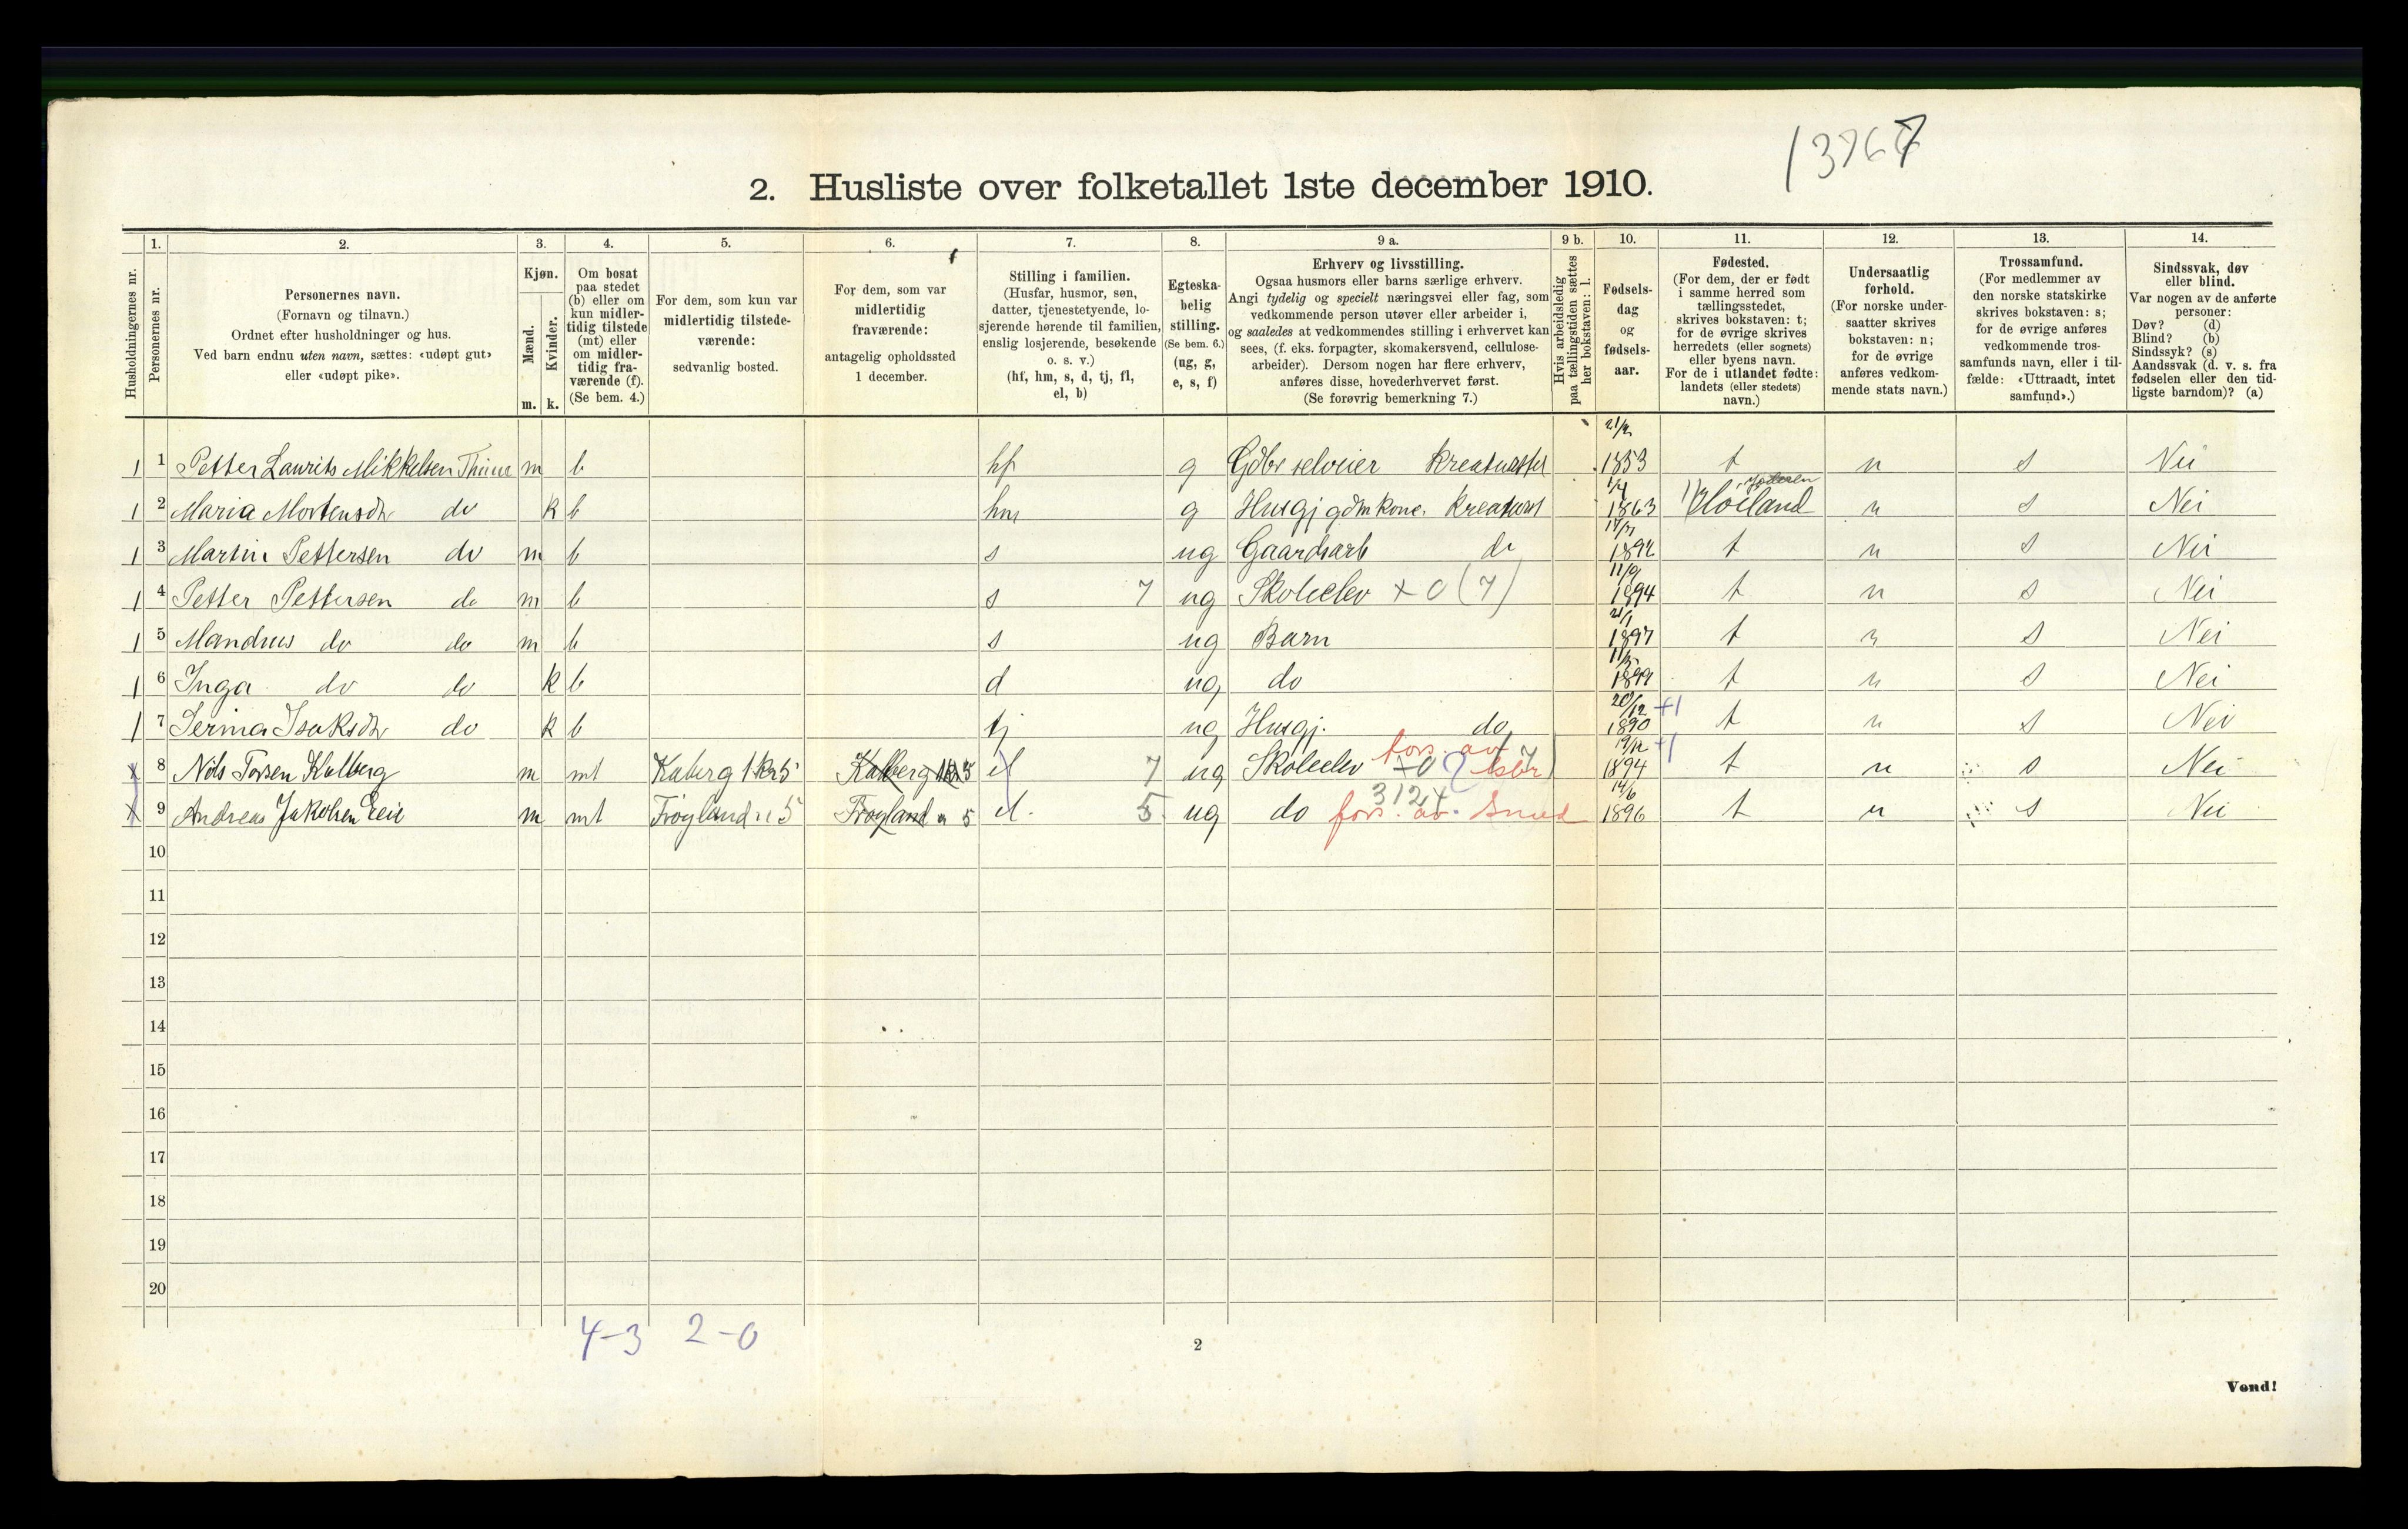 2. Husliste over folketallet 1ste december 1910.
Husholdningernes nr.
1. Personernes nr.
2. Personernes navn. (Fornavn og tilnavn.) Ordnet efter husholdninger og hus. Ved barn endnu uten navn, sættes: «udøpt gut» eller «udøpt pike».
3. Kjøn. Mænd. m. Kvinder. k.
4. Om bosat paa stedet (b) eller om kun midlertidig tilstede (mt) eller om midlertidig fraværende (f). (Se bem. 4.)
5. For dem, som kun var midlertidig tilstedeværende: sedvanlig bosted.
6. For dem, som var midlertidig fraværende: antagelig opholdssted 1 december.
7. Stilling i familien. (Husfar, husmor, søn, datter, tjenestetyende, losjerende hørende til familien, enslig losjerende, besøkende o. s. v.) (hf, hm, s, d, tj, fl, el, b)
8. Egteskabelig stilling. (Se bem. 6.) (ug, g, e, s, f)
9 a. Erhverv og livsstilling. Ogsaa husmors eller barns særlige erhverv. Angi tydelig og specielt næringsvei eller fag, som vedkommende person utøver eller arbeider i, og saaledes at vedkommendes stilling i erhvervet kan sees, (f. eks. forpagter, skomakersvend, cellulosearbeider). Dersom nogen har flere erhverv, anføres disse, hovederhvervet først. (Se forøvrig bemerkning 7.)
9 b. Hvis arbeidsledig paa tællingstiden sættes her bokstaven: l.
10. Fødselsdag og fødselsaar.
11. Fødested. (For dem, der er født i samme herred som tællingsstedet, skrives bokstaven: t; for de øvrige skrives herredets (eller sognets) eller byens navn. For de i utlandet fødte: landets (eller stedets) navn.)
12. Undersaatlig forhold. (For norske undersaatter skrives bokstaven: n; for de øvrige anføres vedkommende stats navn.)
13. Trossamfund. (For medlemmer av den norske statskirke skrives bokstaven: s; for de øvrige anføres vedkommende trossamfunds navn, eller i tilfælde: «Uttraadt, intet samfund».)
14. Sindssvak, døv eller blind. Var nogen av de anførte personer: Døv? (d) Blind? (b) Sindssyk? (s) Aandssvak (d. v. s. fra fødselen eller den tidligste barndom)? (a)
1 1 Petter Laurits Mikkelsen m b hf g Gdbr selveier 1853 t n s Nei
1 2 Maria Mortensdtr do k b hm g Husgj gdmkone. 1/4 1863 Høiland n s Nei
1 3 Martin Pettersen do m b s ug Gaardsarb do 1892 t n s Nei
1 4 Petter Pettersen do m b s 7 ug Skoleelev x 0 (7) 11/9 1894 t n s Nei
1 5 Mandrus do do m b s ug Barn 21/1 1897 t n s Nei
1 6 Inga do do k b d ug do 1899 t n s Nei
1 7 Serina Isaksdtr do k b tj ug Husgj. do 20/12 1890 +1 t n s Nei
x 8 Nils Torsen Kalberg m mt Kaberg 1 kr 5 Kalberg 5 el 7 ug Skoleelev x0 fors. av 19/12 1894 +1 t n s Nei
x 9 Andreas Jakobsen Eeie m mt Frøyland 5 Frøyland 5 el. 5 ug do 312 fors. av. Smed 14/6 1896 t n s Nei
10
11
12
13
14
15
16
17
18
19
20
4-3 2-0
2
Vend!